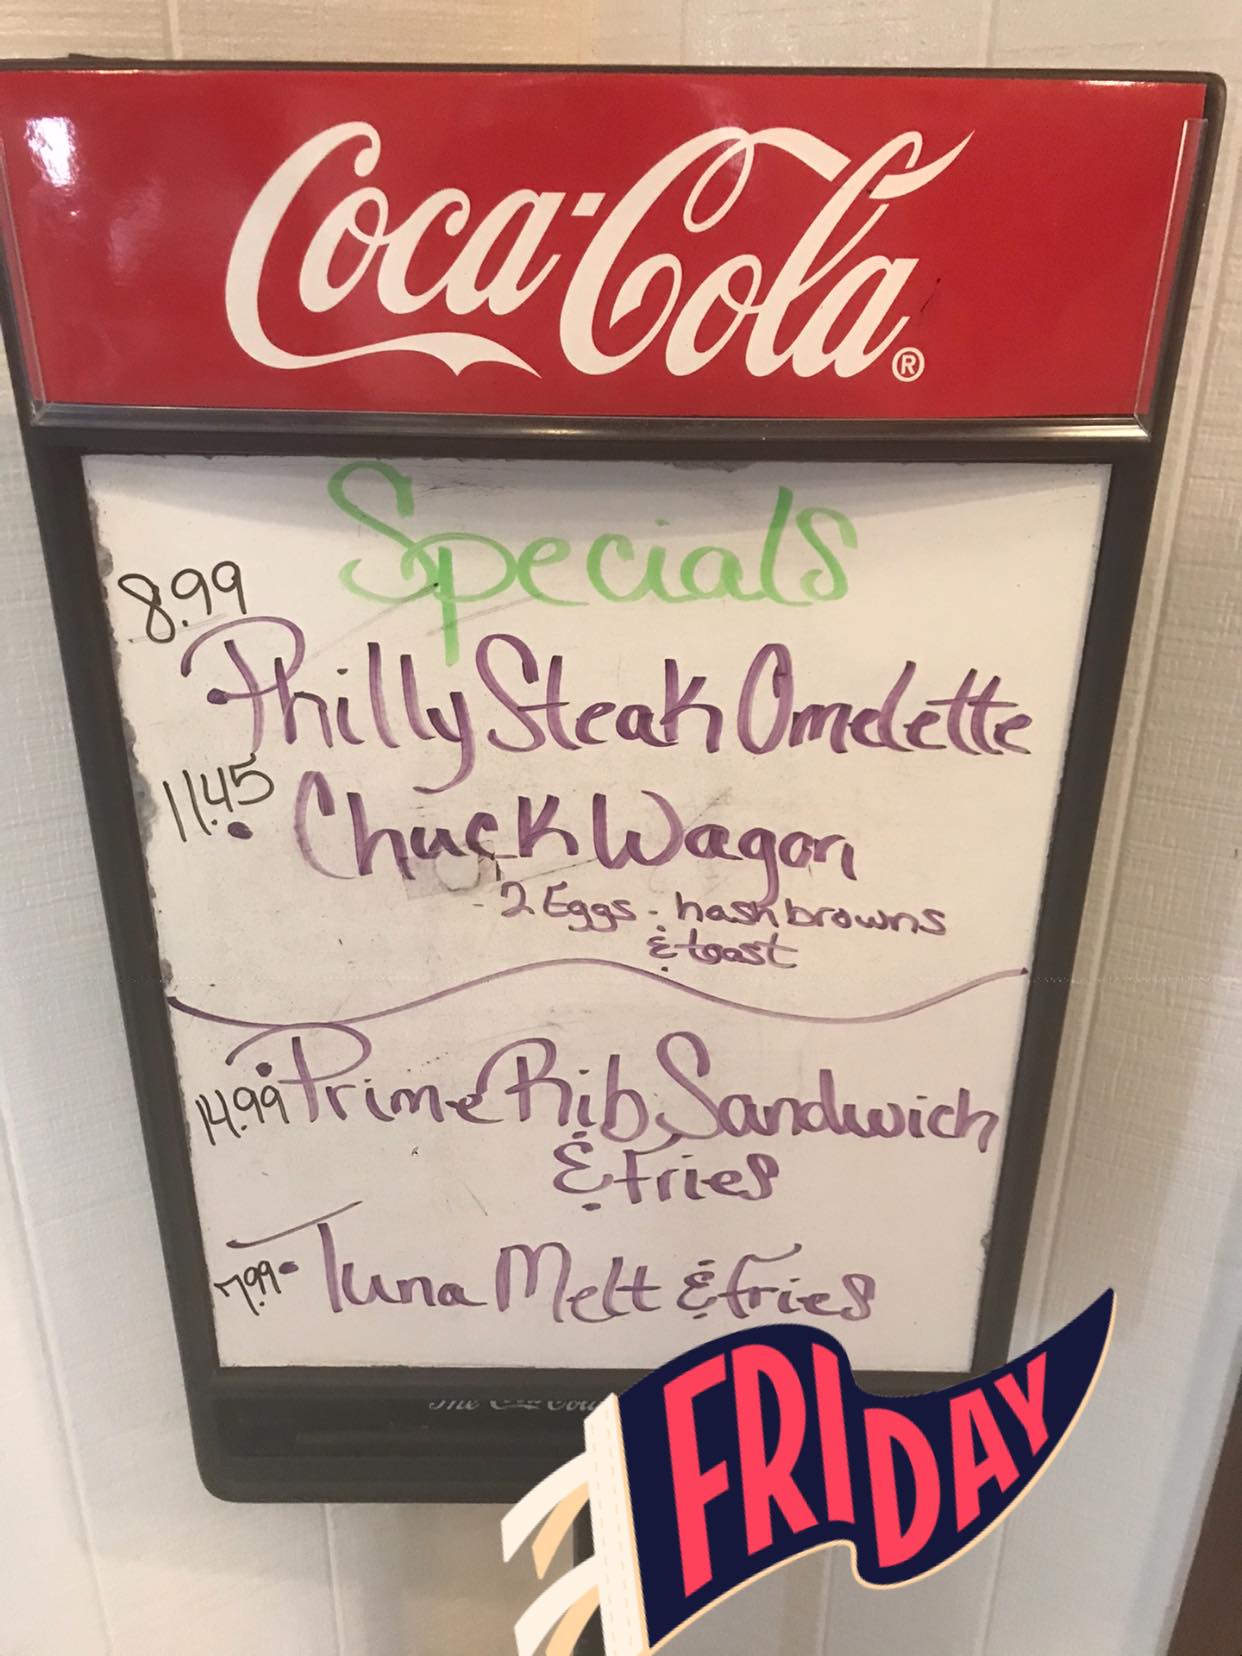 Coca-Cola®
Specials
8.99
Philly Steak Omelette
11.45
Chuck Wagon
- 2 Eggs - hashbrowns
& toast
14.99 • Prime Rib Sandwich
& Fries
7.99 • Tuna Melt & fries
FRIDAY